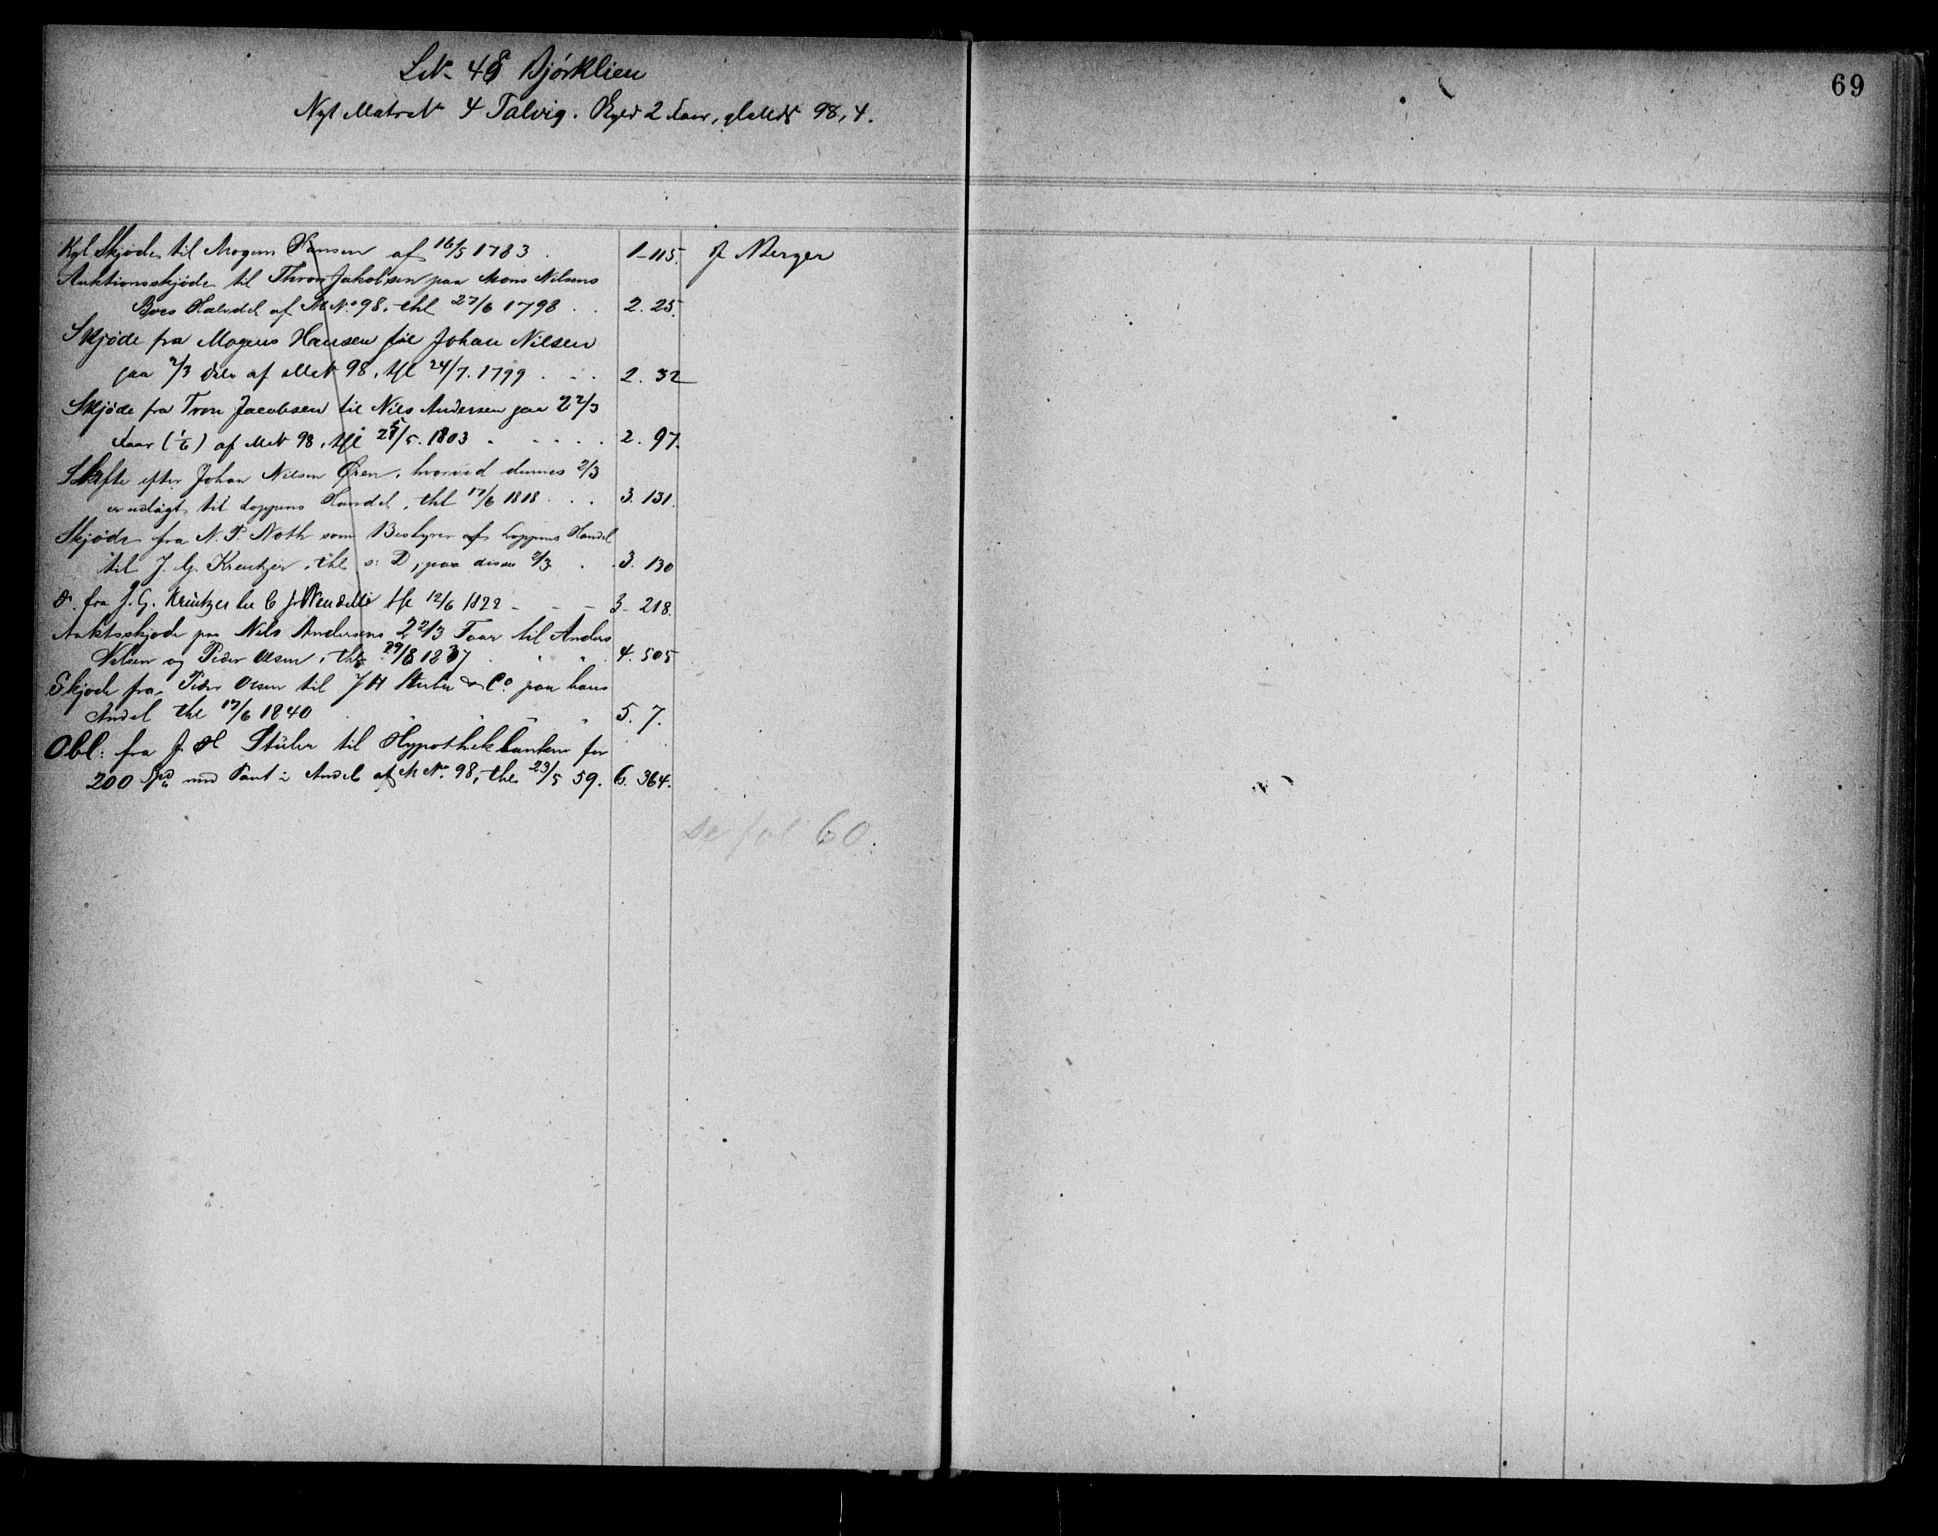 69
LN. 48 Bjørklien
Nyt MatrN 4 Talvig. Skyld 2 Faar, glMN 98, 4.
Kgl Skjøde til Mogens Hansen af 16/5 1783 . 1-115. A Berger
Auktionsskjøde til Thron Jakobsen paa Mons Nilsens
Boes Halvdel af M.No. 98. thl 27/6 1798 . . 2. 25.
Skjøde fra Mogens Hansen til Johan Nilsen
paa 2/3 Dele af MN 98. thl 24/7. 1799 . - . 2. 32
Skjøde fra Tron Jacobsen til Nils Andersen paa 2 2/3
Faar (1/6) af MN 98. thl 25/5. 1803 . - - . . 2. 97.
Skifte efter Johan Nilsen Øren, hvorved dennes 2/3
er udlagt til Loppens Handel, thl 17/6 1818 . . . 3. 131.
Skjøde fra N. P. Noth som Bestyrer af Loppens Handel
til J. G. Kreutzer, thl s: D, paa disse 2/3 . . 3. 130
Do. fra J. G. Kreutzer til C thl 12/6 1822 - - - 3- 218.
Auktsskjøde paa Nils Andersens 2 2/3 Faar til Anders
Nilsen og Peder Olsen, thl 29/8 1837 . " " . 4. 505
Skjøde fra Peder Olsen til J H Stuber & Co. paa hans
Andel thl 17/6 1840 " " " " 5. 7.
Obl: fra J. H Stüber til Hypothekbanken for
200 Spd med Pant i Andel af M No. 98, thl 23/5 59. 6. 364.
se fol 60.